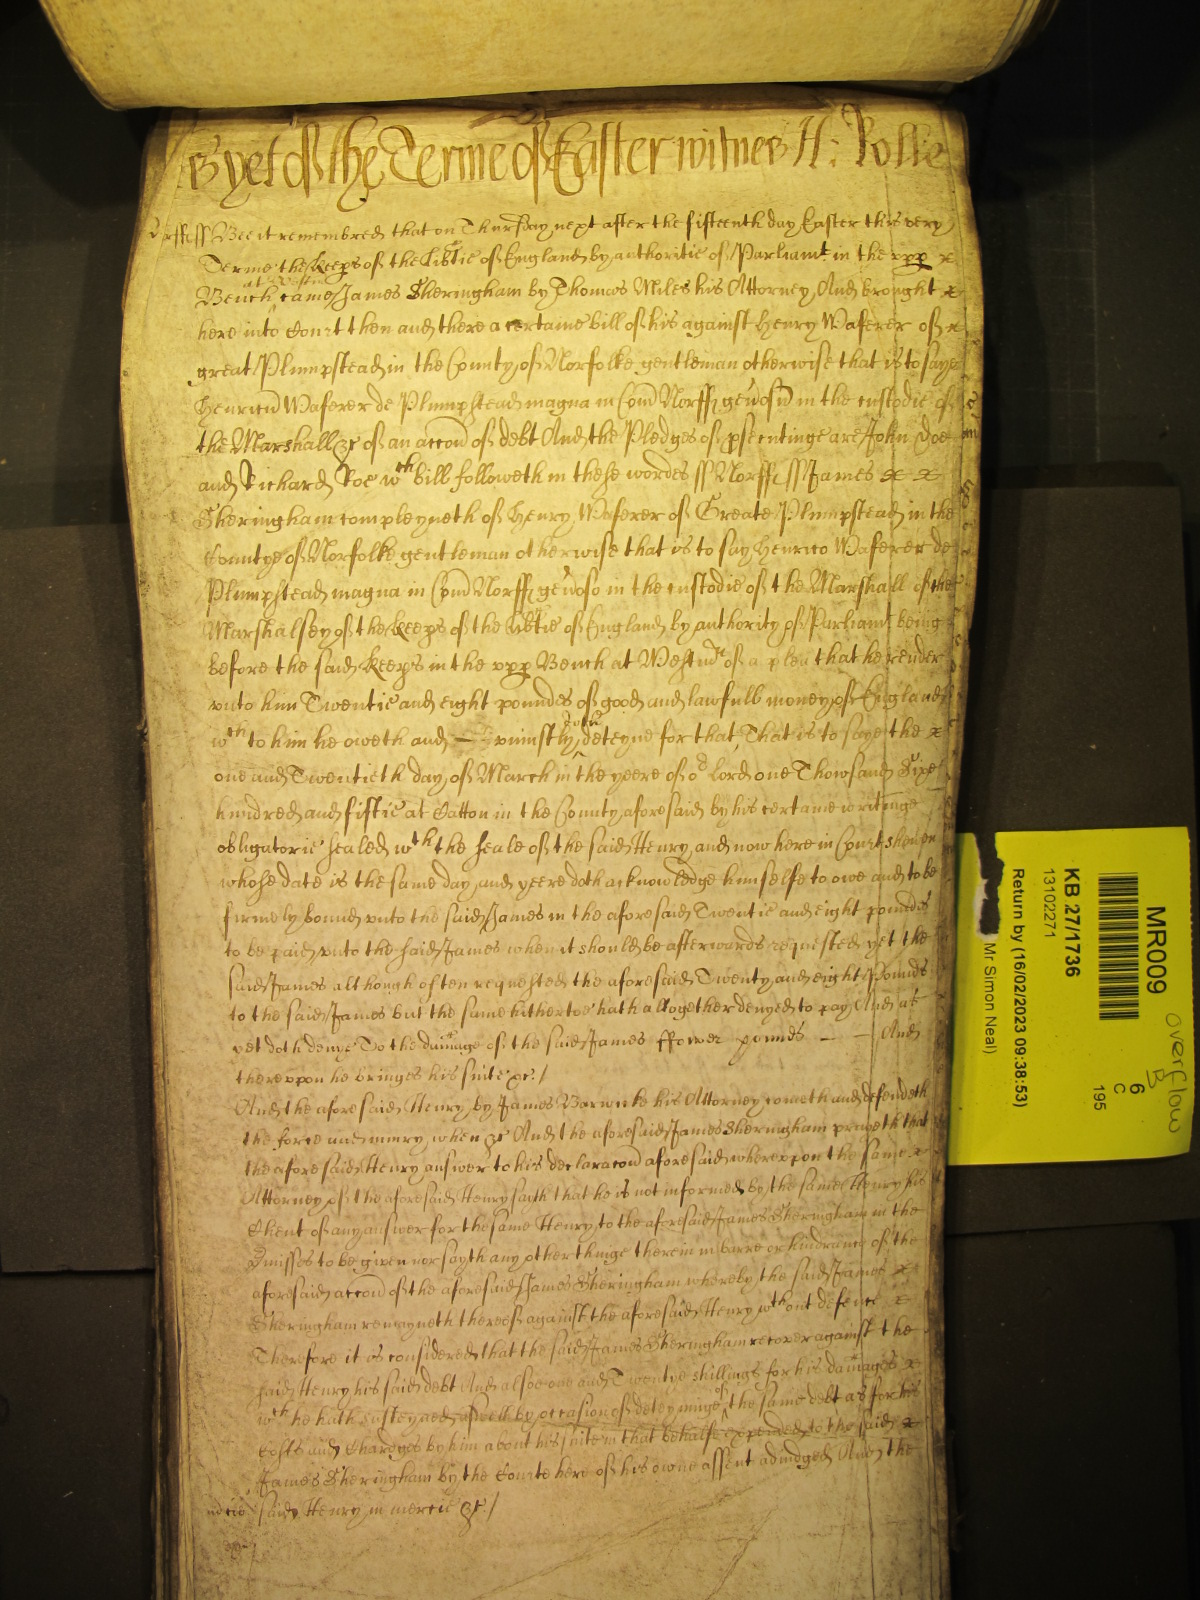 As yet of the Terme of Easter witnes H: Rolle
Norff ss Bee it remembred that on Thursday next after the fifteenth day Easter this very
Terme the keeps of the libtie of England by authoritie of Parliamt in the vpp
at Westm
Bench came James Sheringham by Thomas Miles his Attorney And brought
here into Court then and there a certaine bill of his against Henry Waferer of
great Plumpstead in the County of Norfolke gentleman otherwise that is to saye
Henricu Waferer de Plumpstead magna in Com Norff genosu in the custodie of
the Marshall &c of an accon of debt And the Pledges of psecutinge are John Doe
and Richard Roe wch bill followeth in these wordes ss Norff ss James
Sheringham compleyneth of Henry Waferer of Greate Plumpstead in the
Countye of Norfolke gentleman otherwise that is to say Henrico Waferer de
Plumpstead magna in Com Norff genoso in the custodie of the Marshall of the
Marshalsey of the keeps of the libtie of England by authority of Parliamt being
before the said keeps in the vpp Bench at Westmr of a plea that he render
vnto him Twentie and eight poundes of good and lawfull money of England
wch to him he oweth and vniustly doth deteyne for that, That is to saye the
one and Twentieth day of March in the yeere of or Lord one Thowsand Sixe
hundred and fiftie at Catton in the County aforesaid by his certaine writinge
obligatorie sealed wth the seale of the said Henry and now here in Court shewen
whose date is the same day and yeere doth acknowledge himselfe to owe and to be
firmely bound vnto the said James in the aforesaid Twentie and eight pounds
to be paid vnto the said James when it should be afterwards requested yet the
said James although often requested the aforesaid Twenty and eight Pounds
to the said James but the same hithertoe hath altogether denyed to pay And as
yet doth denye To the damage of the said James ffower pounds And
therevpon he bringes his suite &c./
And the aforesaid Henry by James Barwicke his Attorney cometh and defendeth
the force and iniury when &c And the aforesaid James Sheringham prayeth that
the aforesaid Henry answer to his declaracon aforesaid wherevpon the same
Attorney of the aforesaid Henry saith that he is not informed by the same Henry his
Client of any answer for the same Henry to the aforesaid James Sheringham in the
Pmisses to be given nor sayth any other thinge therein in barre or hindrance of the
aforesaid accon of the aforesaid James Sheringham whereby the said James
Sheringham remayneth thereof against the aforesaid Henry wthout defence
Therefore it is considered that the said James Sheringham recover against the
said Henry his said debt And alsoe one and Twentye shillings for his damages
wch he hath susteyned aswell by occasion of deteyninge of the same debt as for his
Costs and Chardges by him about his suite in that behalfe expended to the said
James Sheringham by the Courte here of his owne assent adiudged And the
said Henry in mercie &c./
MR009
6
C
195
KB 27/1736
13102271
Return by (16/02/2023 09:38:53)
Mr Simon Neal)
overflow
B